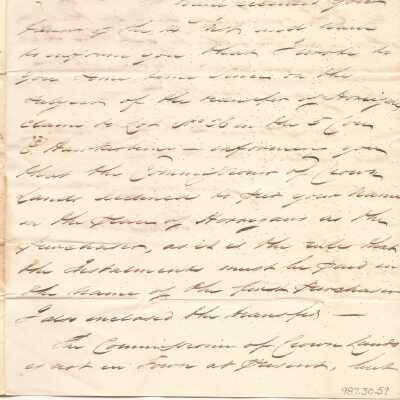 have received your
favor of the 14 Inst and have
to inform you that I wrote to
you some time since on the
subject of the transfer of Horrigans
claim to Lot No 26 in the 5 Con
E Hawkesbury – informing you
that the Commissioner of Crown
Lands declined to put your name
in the place of Horrigans as the
purchaser, as it is the rule that
the Instalments must be paid in
the name of the first Purchaser
I also enclosed the transfer –
The Commissioner of Crown Lands
is not in Town at Present, but
987.30.59